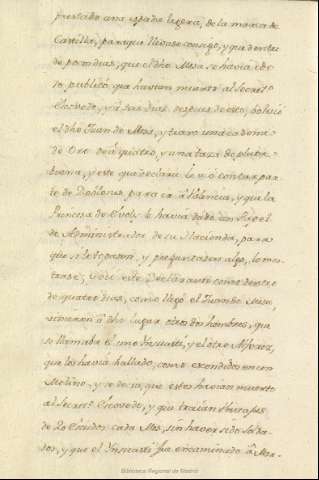 prestado una espada ligera, de la marca de
Castilla, para que llevase consigo, y que dentro
de pocos dias, que el dho Mesa se havia ido
se publicó, que havian muerto al Secret.o
Escovedo, y á seis dias despues de esto, bolvió
el dho Juan de Mesa, y traxo una cadena
de Oro de á quatro, y una taza de plata
buena, y este que declara le vió contar par-
te de Doblones para ir á Valencia, y que la
Princesa de Evoli le havia dado un Papel
de Administrador de su Hacienda, para
que si le topasen, y preguntasen algo, lo mos-
trase; y vió este Declarante como dentro
de quatro dias, como llegó el Juan de Mesa,
vinieron á dho lugar otros dos hombres, que
se llamaba el uno Insausti, y el otro Alferez,
que los havia hallado, como escondidos en un
Molino, y se decia, que estos havian muerto
al Secret.o Escovedo, y que traían
de 20 Escudos cada Mes, sin haver sido Solda-
dos, y que el Ynsausti fue encaminado á
Biblioteca Regional de Madrid